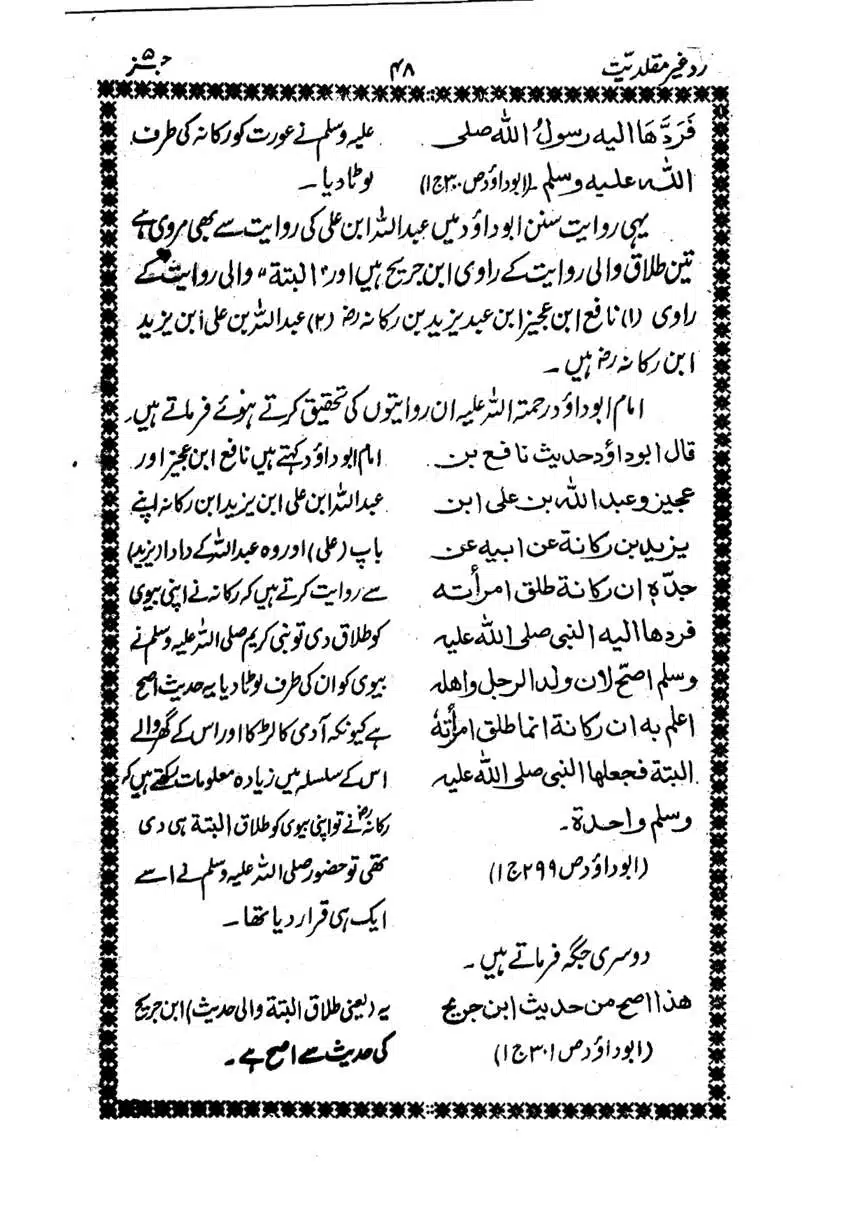 رد غیر مقلدیت
۴۸
جز ۵
فَرَدَّهَا الیه رسولُ الله صلی
علیہ وسلم نے عورت کو رکانہ کی طرف
الله علیه وسلم ـ (ابوداؤد ص ۳۰۰ ج۱)
لوٹا دیا ۔
یہی روایت سنن ابوداؤد میں عبداللہ ابن علی کی روایت سے بھی مروی ہے
تین طلاق والی روایت کے راوی ابن جریج ہیں اور "البتة" والی روایت کے
راوی (۱) نافع ابن عجیز ابن عبد یزید بن رکانہ رضؓ (۲) عبداللہ بن علی ابن یزید
ابن رکانہ رضؓ ہیں ۔
امام ابوداؤد رحمتہ اللہ علیہ ان روایتوں کی تحقیق کرتے ہوئے فرماتے ہیں۔
قال ابوداؤد حدیث نافع بن
امام ابوداؤد کہتے ہیں نافع ابن عجیز اور
عجیز و عبد الله بن علی ابن
عبداللہ ابن علی ابن یزید ابن رکانہ اپنے
یزید بن رکانة عن ابیه عن
باپ (علی) اور وہ عبداللہ کے دادا (یزید)
جدّہ ان رکانة طلق امرأته
سے روایت کرتے ہیں کہ رکانہ نے اپنی بیوی
فردها الیه النبی صلی الله علیه
کو طلاق دی تو نبی کریم صلی اللہ علیہ وسلم نے
وسلم اصحّ لان ولد الرجل واهله
بیوی کو ان کی طرف لوٹا دیا یہ حدیث اصح
اعلم به ان رکانة انما طلق امرأتهٗ
ہے کیونکہ آدمی کا لڑکا اور اس کے گھر والے
البتة فجعلها النبی صلی الله علیه
اس کے سلسلہ میں زیادہ معلومات رکھتے ہیں کہ
وسلم واحدة ۔
رکانہ رضؓ نے تو اپنی بیوی کو طلاق البتة ہی دی
(ابوداؤد ص ۲۹۹ ج۱)
تھی تو حضور صلی اللہ علیہ وسلم نے اسے
ایک ہی قرار دیا تھا ۔
دوسری جگہ فرماتے ہیں ۔
هذا اصح من حدیث ابن جریج
یہ (یعنی طلاق البتة والی حدیث) ابن جریج
(ابوداؤد ص ۳۰۱ ج۱)
کی حدیث سے اصح ہے ۔